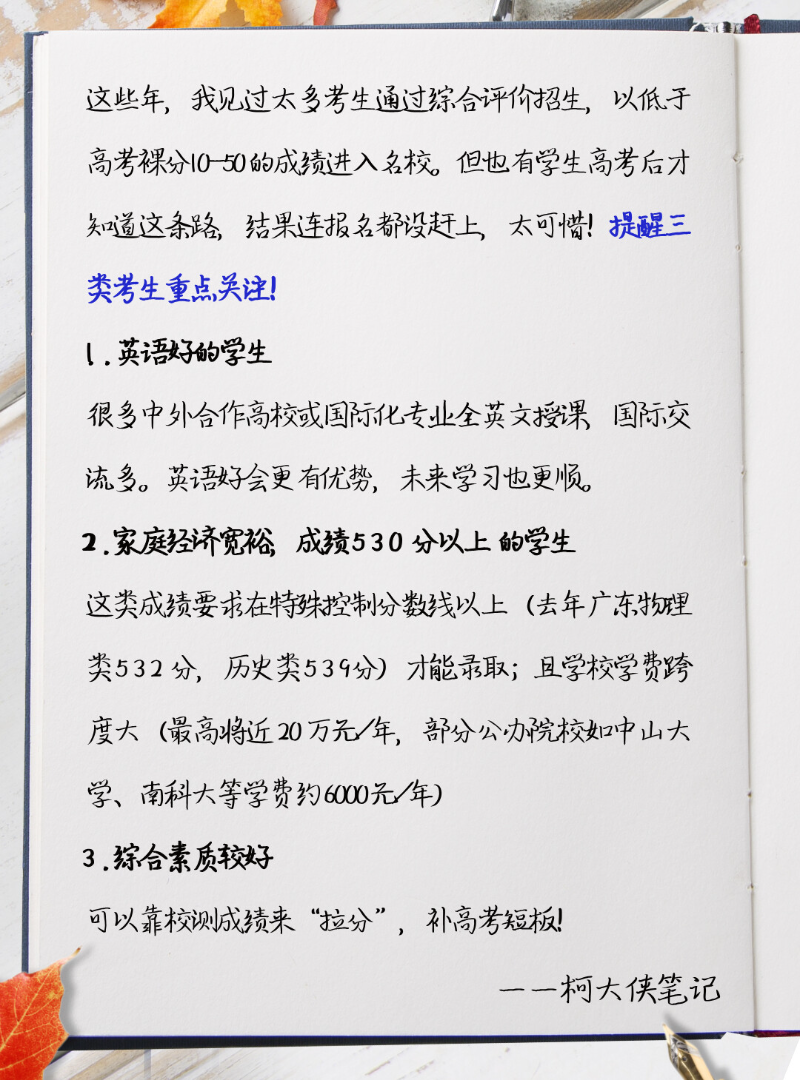 这些年，我见过太多考生通过综合评价招生，以低于
高考裸分10-50的成绩进入名校。但也有学生高考后才
知道这条路，结果连报名都没赶上，太可惜！提醒三
类考生重点关注！
1.英语好的学生
很多中外合作高校或国际化专业全英文授课，国际交
流多。英语好会更有优势，未来学习也更顺。
2.家庭经济宽裕，成绩530分以上的学生
这类成绩要求在特殊控制分数线以上（去年广东物理
类532分，历史类539分）才能录取；且学校学费跨
度大（最高将近20万元/年，部分公办院校如中山大
学、南科大等学费约6000元/年）
3.综合素质较好
可以靠校测成绩来“拉分”，补高考短板！
——柯大侠笔记